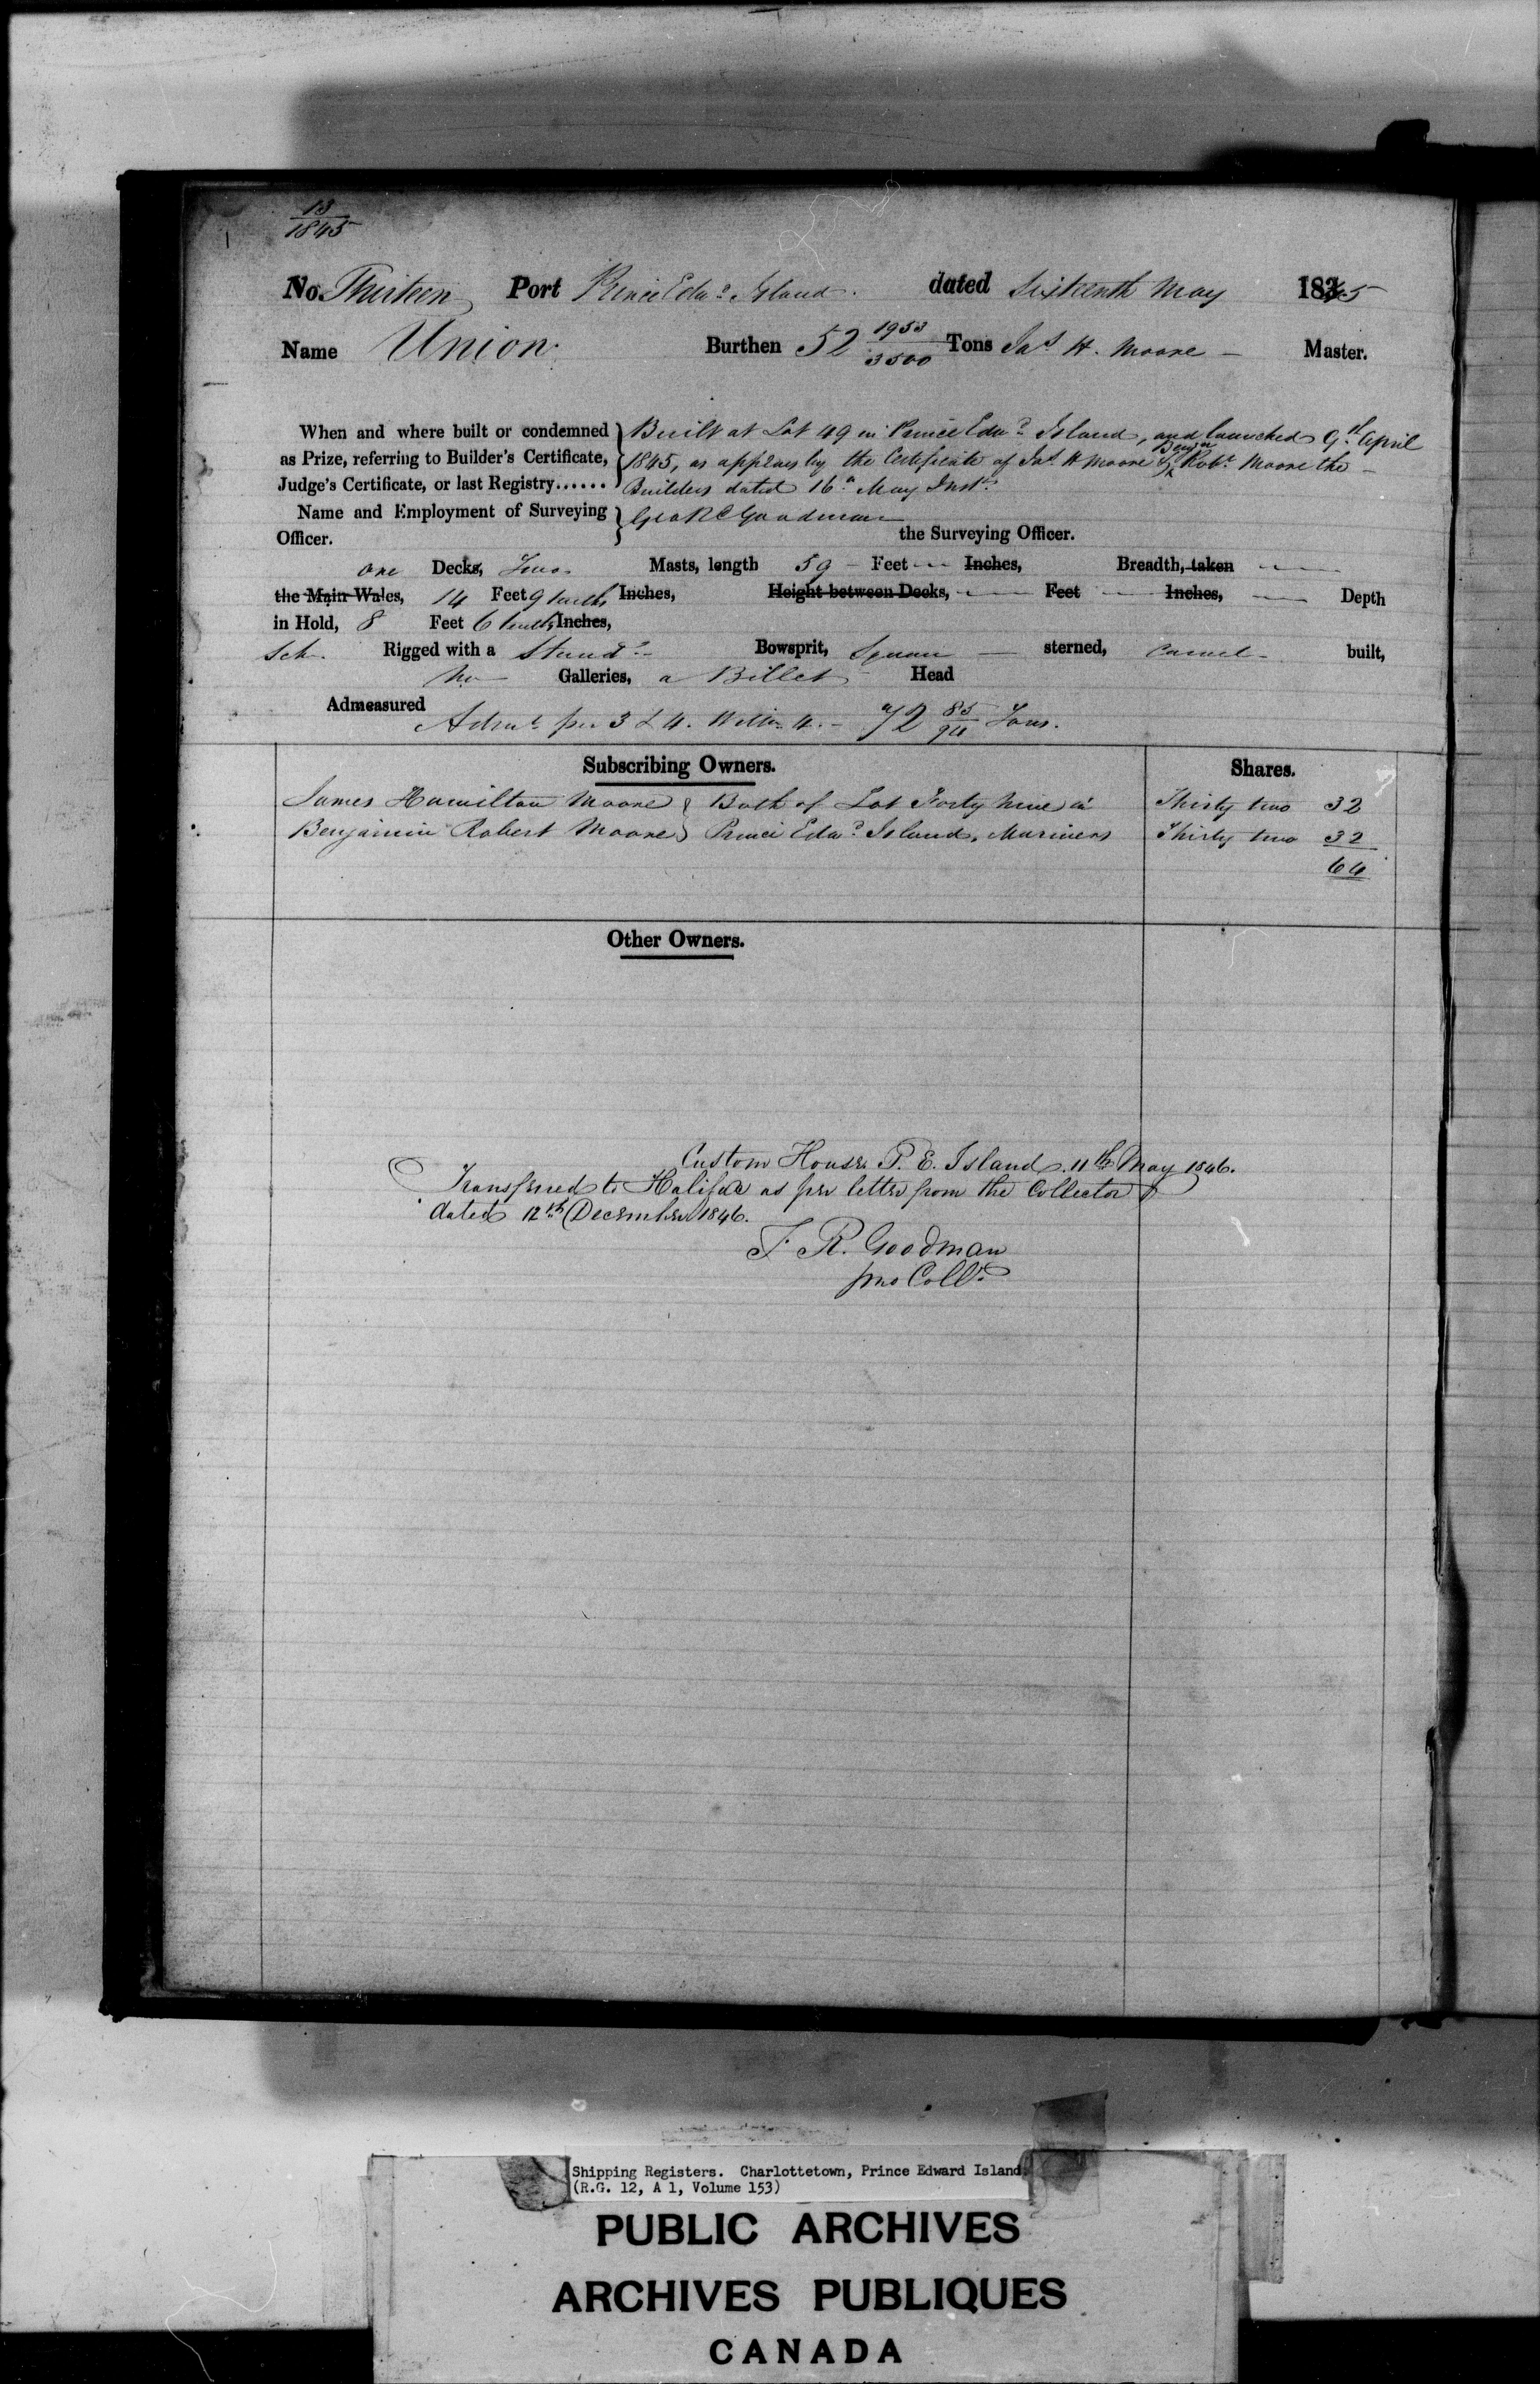 13
1845
No. Thirteen Port Prince Edwd Island. dated Sixteenth May 1845
Name Union. Burthen 52 1953/3500 Tons Jas H. Moore — Master.
When and where built or condemned } Built at Lot 49 in Prince Edwd Island, and launched 9th April
as Prize, referring to Builder's Certificate, { 1845, as appears by the Certificate of Jas H Moore & Benjn Robt Moore the —
Judge's Certificate, or last Registry...... } Builders dated 16th May Inst.
Name and Employment of Surveying } Geo R Goodman
Officer. the Surveying Officer.
one Decks, Two Masts, length 59 — Feet — Inches, Breadth, taken —
the Main Wales, 14 Feet 9 tenths Inches, Height between Decks, — Feet — Inches, — Depth
in Hold, 8 Feet 6 tenths Inches,
Sch. Rigged with a Standg Bowsprit, Square — sterned, Carvel — built,
No — Galleries, a Billet Head
Admeasured
Admt per 3 & 4. Willm 4. — 72 85/94 Tons.
Subscribing Owners. Shares.
James Hamilton Moore } Both of Lot Forty Nine in Thirty two 32
Benjamin Robert Moore } Prince Edwd Island, Mariners Thirty two 32
64
Other Owners.
Custom House P. E. Island. 11th May 1846.
Transferred to Halifax as per letter from the Collector
dated 12th December 1846.
F. R. Goodman
pro Collr
Shipping Registers. Charlottetown, Prince Edward Island
(R.G. 12, A 1, Volume 153)
PUBLIC ARCHIVES
ARCHIVES PUBLIQUES
CANADA